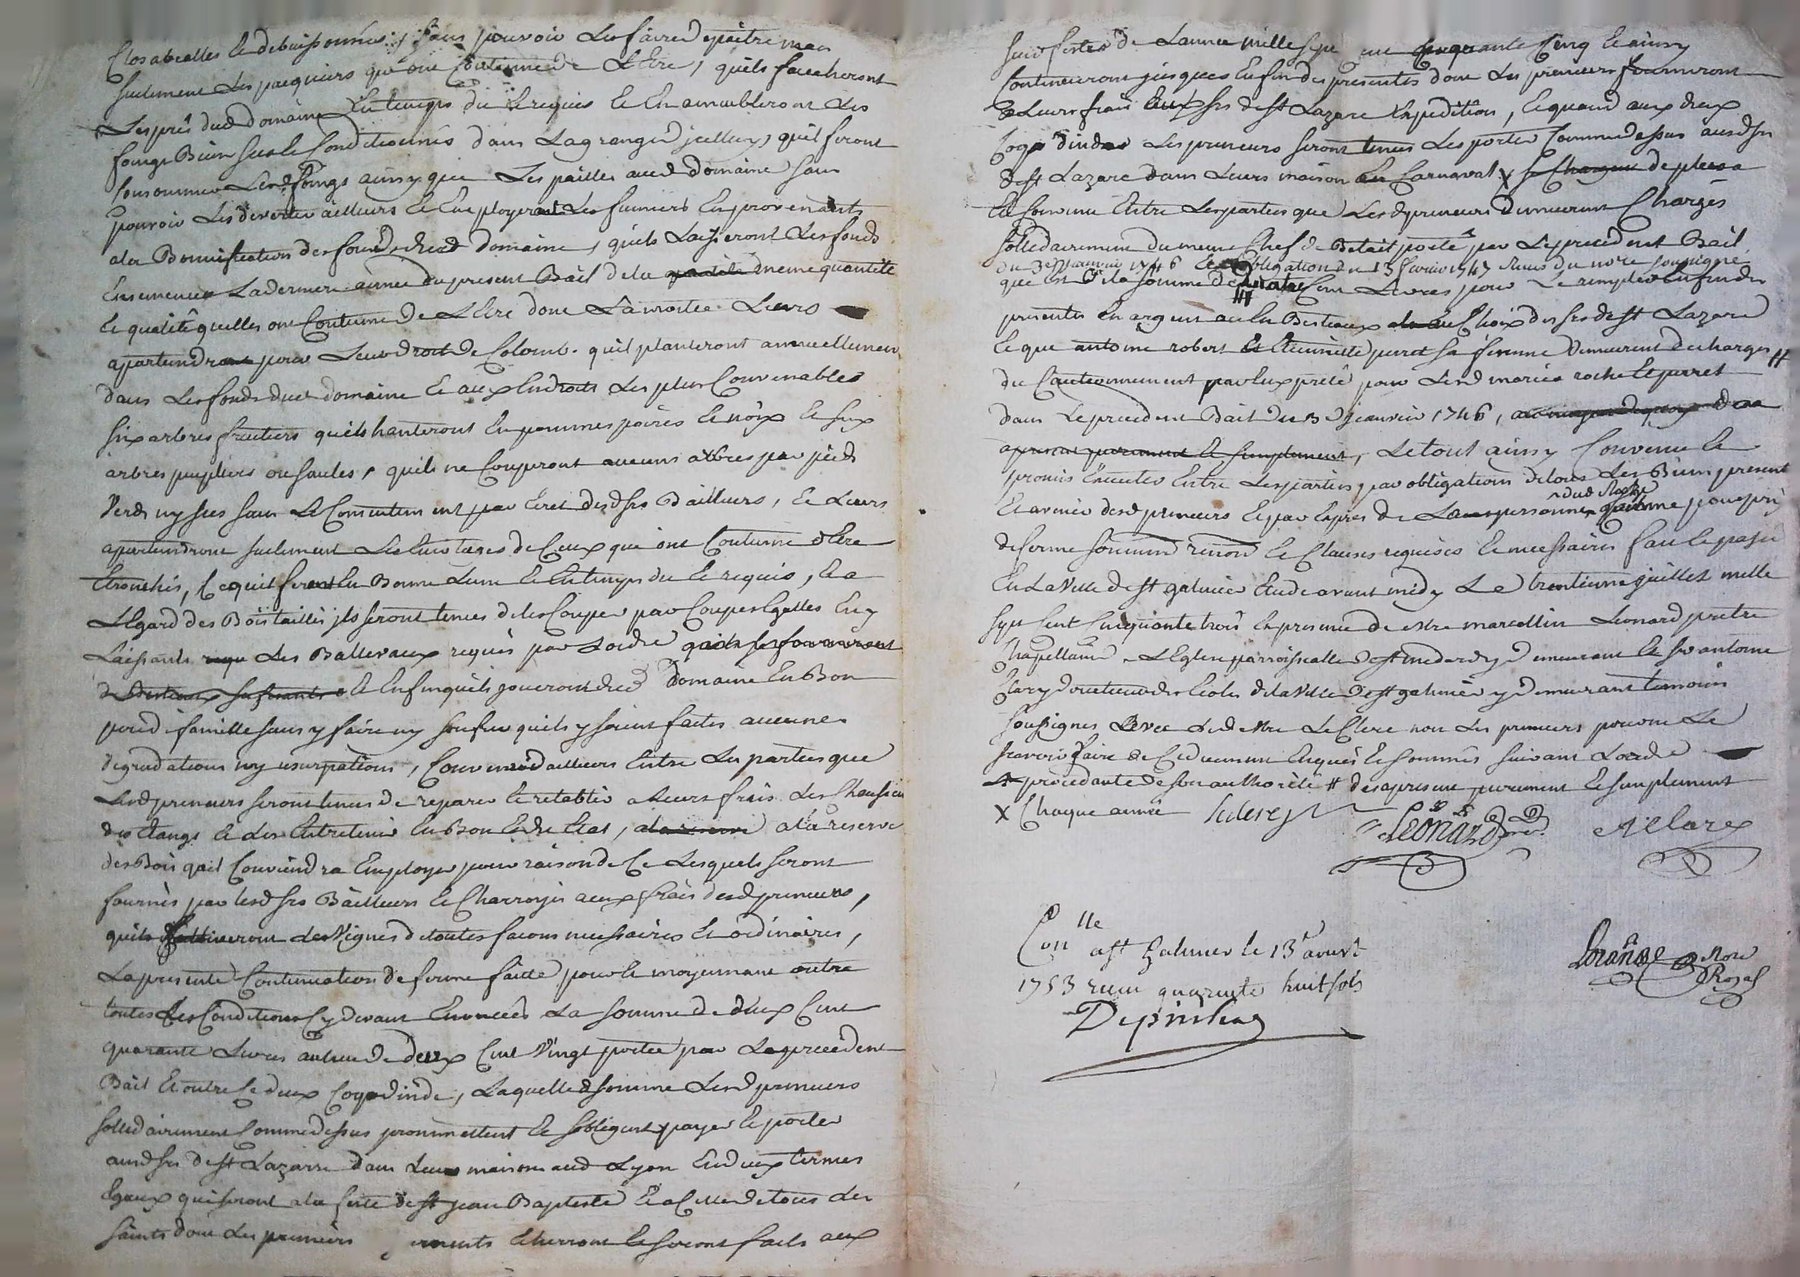 seulement les pacquiers qui ont coutume de L'Etre, quils faucheront
Les prés dud domaine En temps du & requis Et En ameubleront Les
foings Bien secs & conditionnés dans La grange d'jcelluy, quils feront
consommer Lesd foings ainsy que Les pailles aud domaine sans
pouvoir Les divertir ailleurs Et Employeront Les fumiers En provenants
ala Bonnification des fonds dud domaine, quils Laisseront Les fonds
Ensemencés La derniere année du present Bail de la meme quantité
Et qualité quelles ont Coutume de L'Etre dont La moitié Leurs
apartiendra pour Leur droit de Colons. quils planteront annuellement
dans Les fonds dud domaine Et aux Endroits Les plus Convenables
six arbres fruitiers quils hanteront En pommes poires Et noix Et six
arbres peupliers ou saules, quils ne Couperont aucuns arbres par pieds
verds ny secs sans Le Consentement par Ecrit desd srs Bailleurs, Et Leurs
apartiendront seulement Les Emotages de Ceux qui ont Coutume d'Etre
Etronchés, Ce quils feront En Bonne Lune Et En temps du Et requis, Et a
L'Egard des Bois taillis jls seront tenus de les Couper par Coupes Egalles En y
Laissants Les Balleveaux requis par Lordre
Et Enfin quils joueront dud Domaine En Bon
pere de famille sans y faire ny souffrir quils y soient faites aucunes
degradations ny usurpations, Convenu d'ailleurs Entre Les parties que
Lesd preneurs seront tenus de reparer Et retablir a leurs frais Les Chaussées
des Etangs Et Les Entretenir En Bon & du Etat, a la reserve
des Bois quil Conviendra Employer pour raison de Ce Lesquels seront
fournis par Lesd srs Bailleurs Et Charroyés aux frais desd preneurs,
quils Cultiveront Les Vignes de toutes facons necessaires Et ordinaires,
La presente Continuation de ferme faitte pour & moyennant outre
toutes Les Conditions Cy devant Enoncées La somme de deux Cent
quarante Livres au lieu de deux Cent Vingt portée par Le precedent
Bail Et outre Ce deux Coqs dinde, Laquelle somme Lesd preneurs
sollidairement Comme dessus promettent Et sobligent payer Et porter
ausd srs de st Lazare dans Leur maison aud Lyon En deux termes
Egaux qui seront a la feste de st jean Baptiste Et a Celle de tous Les
saints dont Les premiers Echerront Et seront faits aux
susd festes de L'année mille sept cent Cinquante Cinq Et ainsy
Continueront jusques En fin des presentes dont Les preneurs fourniront
a Leurs frais aux srs de st Lazare Expedition, Et quand aux deux
Coqs dindes Les preneurs seront tenus Les porter Comme dessus ausd srs
de st Lazare dans Leurs maison au Carnaval X
Convenu Entre Les parties que Lesd preneurs demeurent Chargés
sollidairement du meme Chef de Betail porté par Le precedent Bail
du 3e janvier 1746 Et obligation du 13 fevrier 1747 du nore soussigné
que Est de la somme de Cent Livres pour Le remplir En fin des
presentes En argent ou En Bestiaux au Choix des srs de st Lazare
Et que antoine robert Et perret sa femme demeurent decharges
du Cautionnement par Eux preté pour Lesd mariés roche Et perret
dans Le precedent Bail du 3e janvier 1746,
Le tout ainsy Convenu Et
promis Executer Entre Les parties par obligations de tous Les Biens present
Et avenir desd preneurs Et par Expres de La personne dud Roche
de ferme soumission renon Et Clauses requises Et necessaires fait Et passé
En La Ville de st galmier Etude avant midy Le trentieme juillet mille
sept Cent Cinquante trois En presence de mre marcellin Leonard pretre
Chapellain L'Eglise parroissialle de st medard y demeurant Et sr antoine
Clary des Ecoles de la Ville de st galmier y demeurant temoins
soussignes avec Led mre Le Clerc non Les preneurs pour ne Le
scavoir faire de Ce deument Enquis Et sommés suivant Lord
procedante de son authorité # desaprésent purement Et simplement
X Chaque année Leclerc
Leonard A Clary
Conlle
a st Galmier le 13e aoust
1753 recu quarante huit sols
Nore
Royal